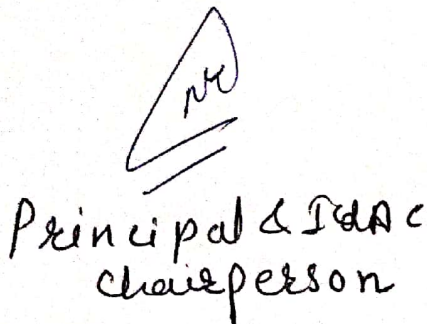 Principal & IQAC
chairperson